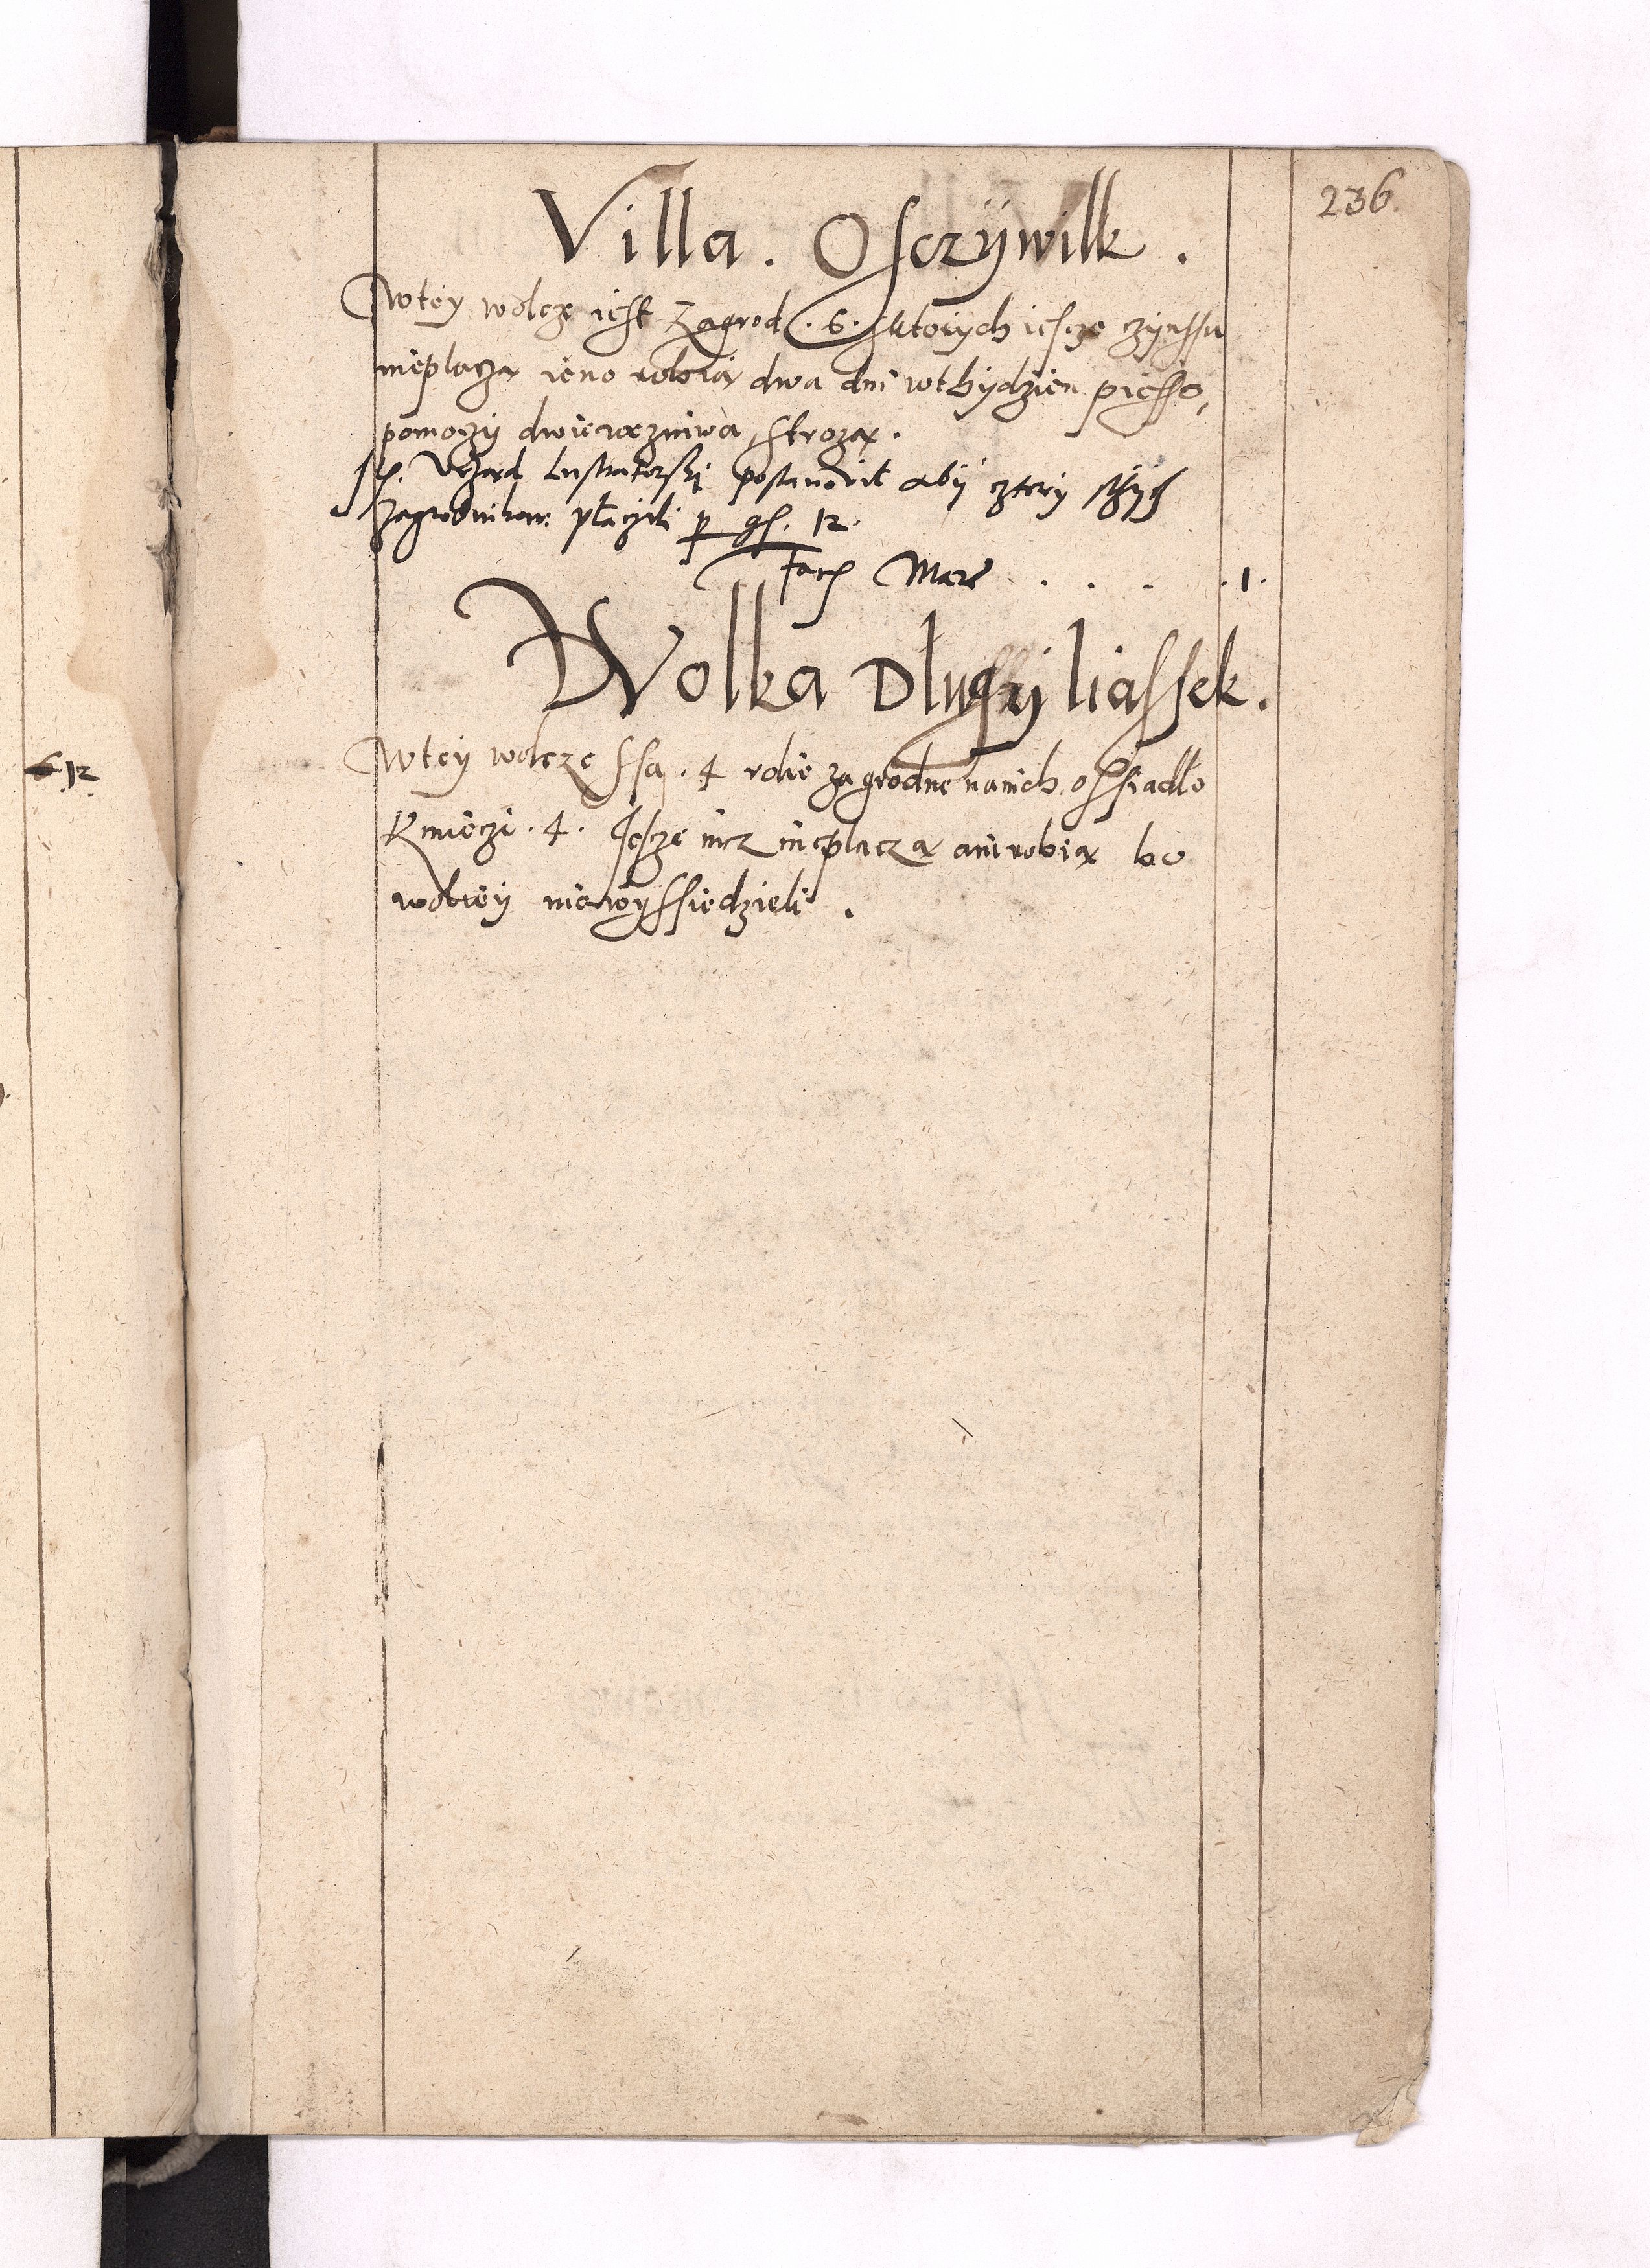 236.
Villa. Osczÿwilk.
Wtey wolcze iest Zagrod .6. sktorych iescze czynssu
nieplacza ieno robia dwa dni wthydzien piesso,
pomoczy dwie wezniwa, stroza.
Vrzard Lustratorski postanowił abÿ cztery
Zagrodnikow płaczili p gs. 12.
facs Marc . . . .1.
Wolka Dlugÿ liassek.
Wtey wolcze ssa .4 rolie zagrodne nanich ossiadlo
Kmieczi .4. Jescze nicz nieplacza ani robia bo
woliey nie wyssiedzieli.
12